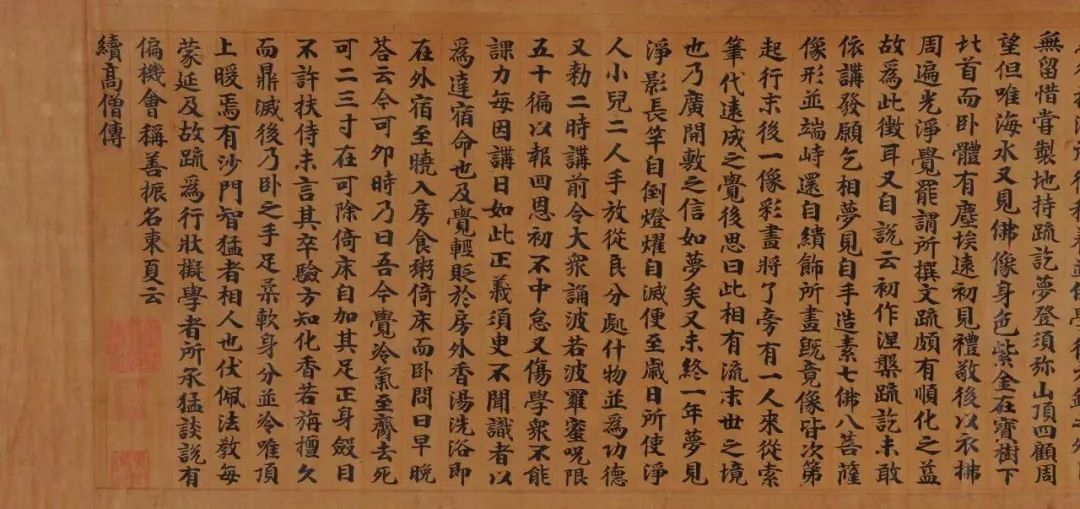 無留惜嘗製地持疏訖夢登須弥山頂四顧周
望但唯海水又見佛像身色紫金在寶樹下
北首而卧體有塵埃遠初見禮敬後以衣拂
周遍光淨覺罷謂所撰文疏頗有順化之益
故爲此徵耳又自說云初作涅槃疏訖未敢
依講發願乞相夢見自手造素七佛八菩薩
像形並端峙還自繢飾所畫既竟像皆次第
起行末後一像彩畫將了旁有一人來從索
筆代遠成之覺後思曰此相有流末世之境
也乃廣開敷之信如夢矣又未終一年夢見
淨影長竿自倒燈燿自滅便至歲日所使淨
人小兒二人手放從良分處什物並爲功德
又勑二時講前令大衆誦波若波羅蜜呪限
五十徧以報四恩初不中怠又傷學衆不能
課力每因講日如此正義須臾不聞識者以
爲達宿命也及覺輕貶於房外香湯洗浴即
在外宿至曉入房食粥倚床而卧問曰早晚
荅云今可卯時乃曰吾今覺冷氣至齊去死
可二三寸在可除倚床自加其足正身斂目
不許扶侍未言其卒驗方知化香若旃檀久
而鼎滅後乃卧之手足柔軟身分並冷唯頂
上暖焉有沙門智猛者相人也伏佩法教每
蒙延及故疏爲行狀擬學者所承猛談說有
偏機會稱善振名東夏云
續高僧傳